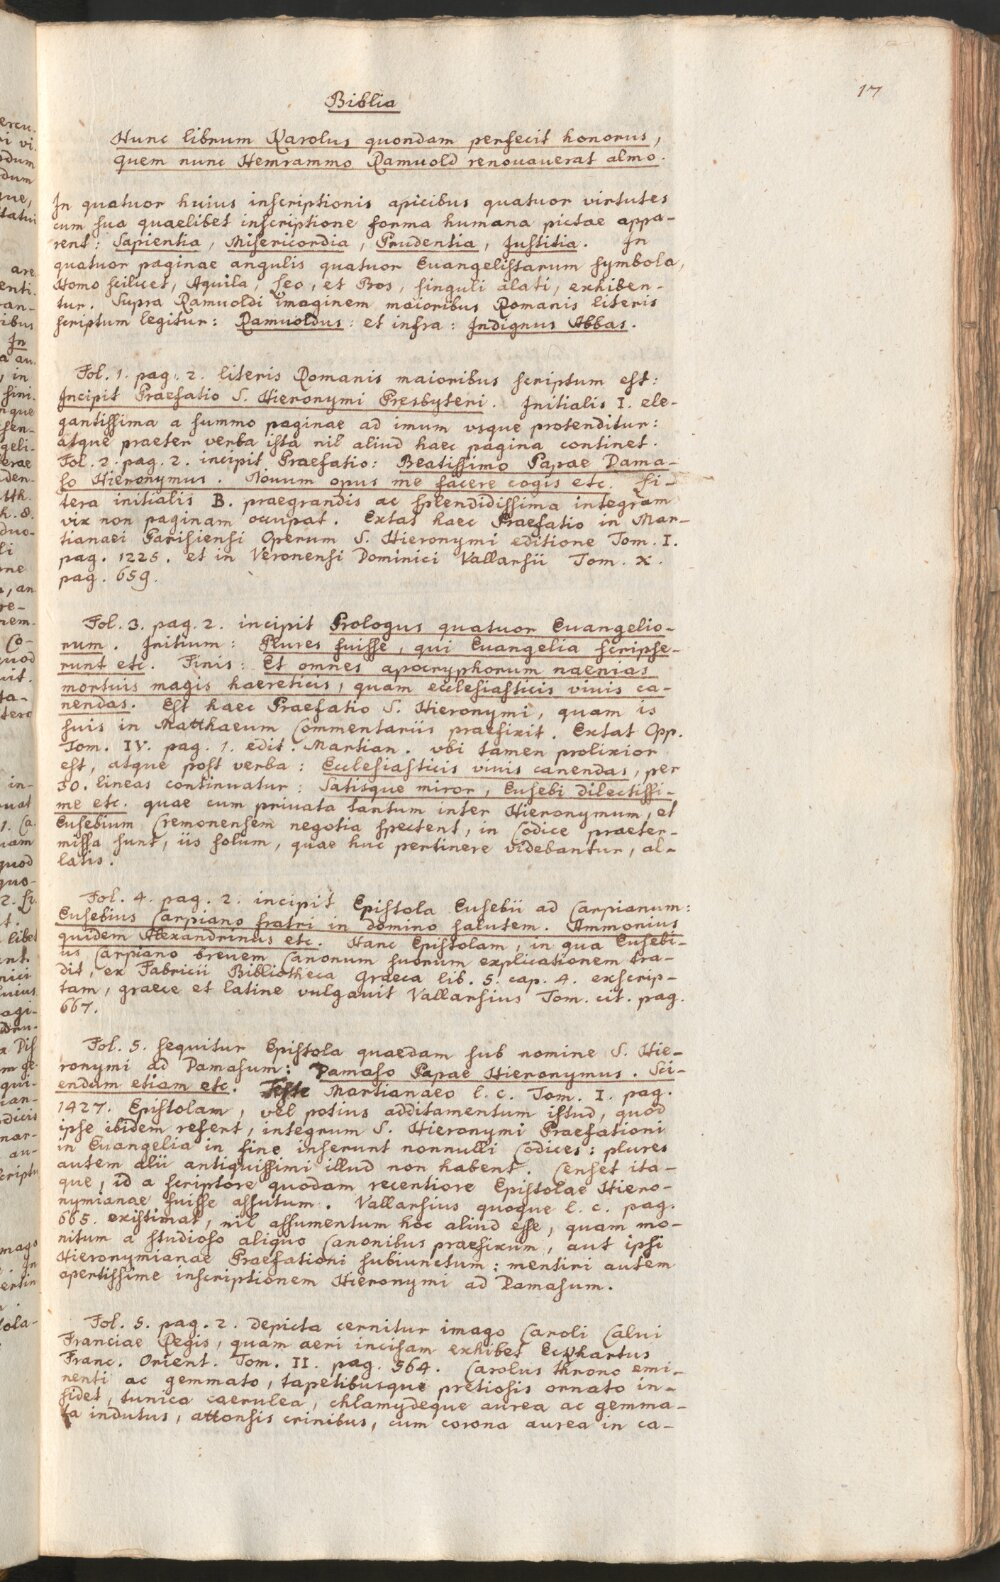 17
Biblia
Hunc librum Karolus quondam perfecit honorus,
quem nunc Hemrammo Ramuold renouauerat almo.
In quatuor huius inscriptionis apicibus quatuor virtutes
cum sua quaelibet inscriptione forma humana pictae appa-
rent: Sapientia, Misericordia, Prudentia, Justitia. In
quatuor paginae angulis quatuor Euangelistarum symbola,
Homo scilicet, Aquila, Leo, et Bos, singuli alati, exhiben-
tur. Supra Ramuoldi imaginem maioribus Romanis literis
scriptum legitur: Ramuoldus: et infra: Indignus Abbas.
Fol. 1. pag. 2. literis Romanis maioribus scriptum est:
Incipit Praefatio S. Hieronymi Presbyteri. Initialis I. ele-
gantissima a summo paginae ad imum vsque protenditur:
atque praeter verba ista nil aliud haec pagina continet.
Fol. 2. pag. 2. incipit Praefatio: Beatissimo Papae Dama-
so Hieronymus. Nouum opus me facere cogis etc. Li-
tera initialis B. praegrandis ac splendidissima integram
vix non paginam occupat. Extat haec Praefatio in Mar-
tianaei Parisiensi Operum S. Hieronymi editione Tom. I.
pag. 1225. et in Veronensi Dominici Vallarsii Tom. X.
pag. 659.
Fol. 3. pag. 2. incipit Prologus quatuor Euangelio-
rum. Initium: Plures fuisse, qui Euangelia scripse-
runt etc. Finis: Et omnes apocryphorum naenias
mortuis magis haereticis, quam ecclesiasticis viuis ca-
nendas. Est haec Praefatio S. Hieronymi, quam is
suis in Matthaeum Commentariis praefixit. Extat Opp.
Tom. IV. pag. 1. edit. Martian. vbi tamen prolixior
est, atque post verba: Ecclesiasticis viuis canendas, per
30. lineas continuatur: Satisque miror, Eusebi dilectissi-
me etc. quae cum priuata tantum inter Hieronymum, et
Eusebium Cremonensem negotia spectent, in Codice praeter-
missa sunt, iis solum, quae huc pertinere videbantur, al-
latis.
Fol. 4. pag. 2. incipit Epistola Eusebii ad Carpianum:
Eusebius Carpiano fratri in domino salutem. Ammonius
quidem Alexandrinus etc. Hanc Epistolam, in qua Eusebi-
us Carpiano breuem Canonum suorum explicationem tra-
dit, ex Fabricii Bibliotheca Graeca lib. 5. cap. 4. exscrip-
tam, graece et latine vulgauit Vallarsius Tom. cit. pag.
667.
Fol. 5. sequitur Epistola quaedam sub nomine S. Hie-
ronymi ad Damasum: Damaso Papae Hieronymus. Sci-
endum etiam etc. Teste Martianaeo l. c. Tom. I. pag.
1427. Epistolam, vel potius additamentum istud, quod
ipse ibidem refert, integrum S. Hieronymi Praefationi
in Euangelia in fine inserunt nonnulli Codices: plures
autem alii antiquissimi illud non habent. Censet ita-
que, id a scriptore quodam recentiore Epistolae Hiero-
nymianae fuisse assutum. Vallarsius quoque l. c. pag.
665. existimat, nil assumentum hoc aliud esse, quam mo-
nitum a studioso aliquo Canonibus praefixum, aut ipsi
Hieronymianae Praefationi subiunctum: mentiri autem
apertissime inscriptionem Hieronymi ad Damasum.
Fol. 5. pag. 2. depicta cernitur imago Caroli Calui
Franciae Regis, quam aeri incisam exhibet Eckhartus
Franc. Orient. Tom. II. pag. 564. Carolus throno emi-
nenti ac gemmato, tapetibusque pretiosis ornato in-
sidet, tunica caerulea, chlamydeque aurea ac gemma-
ta indutus, attonsis crinibus, cum corona aurea in ca-